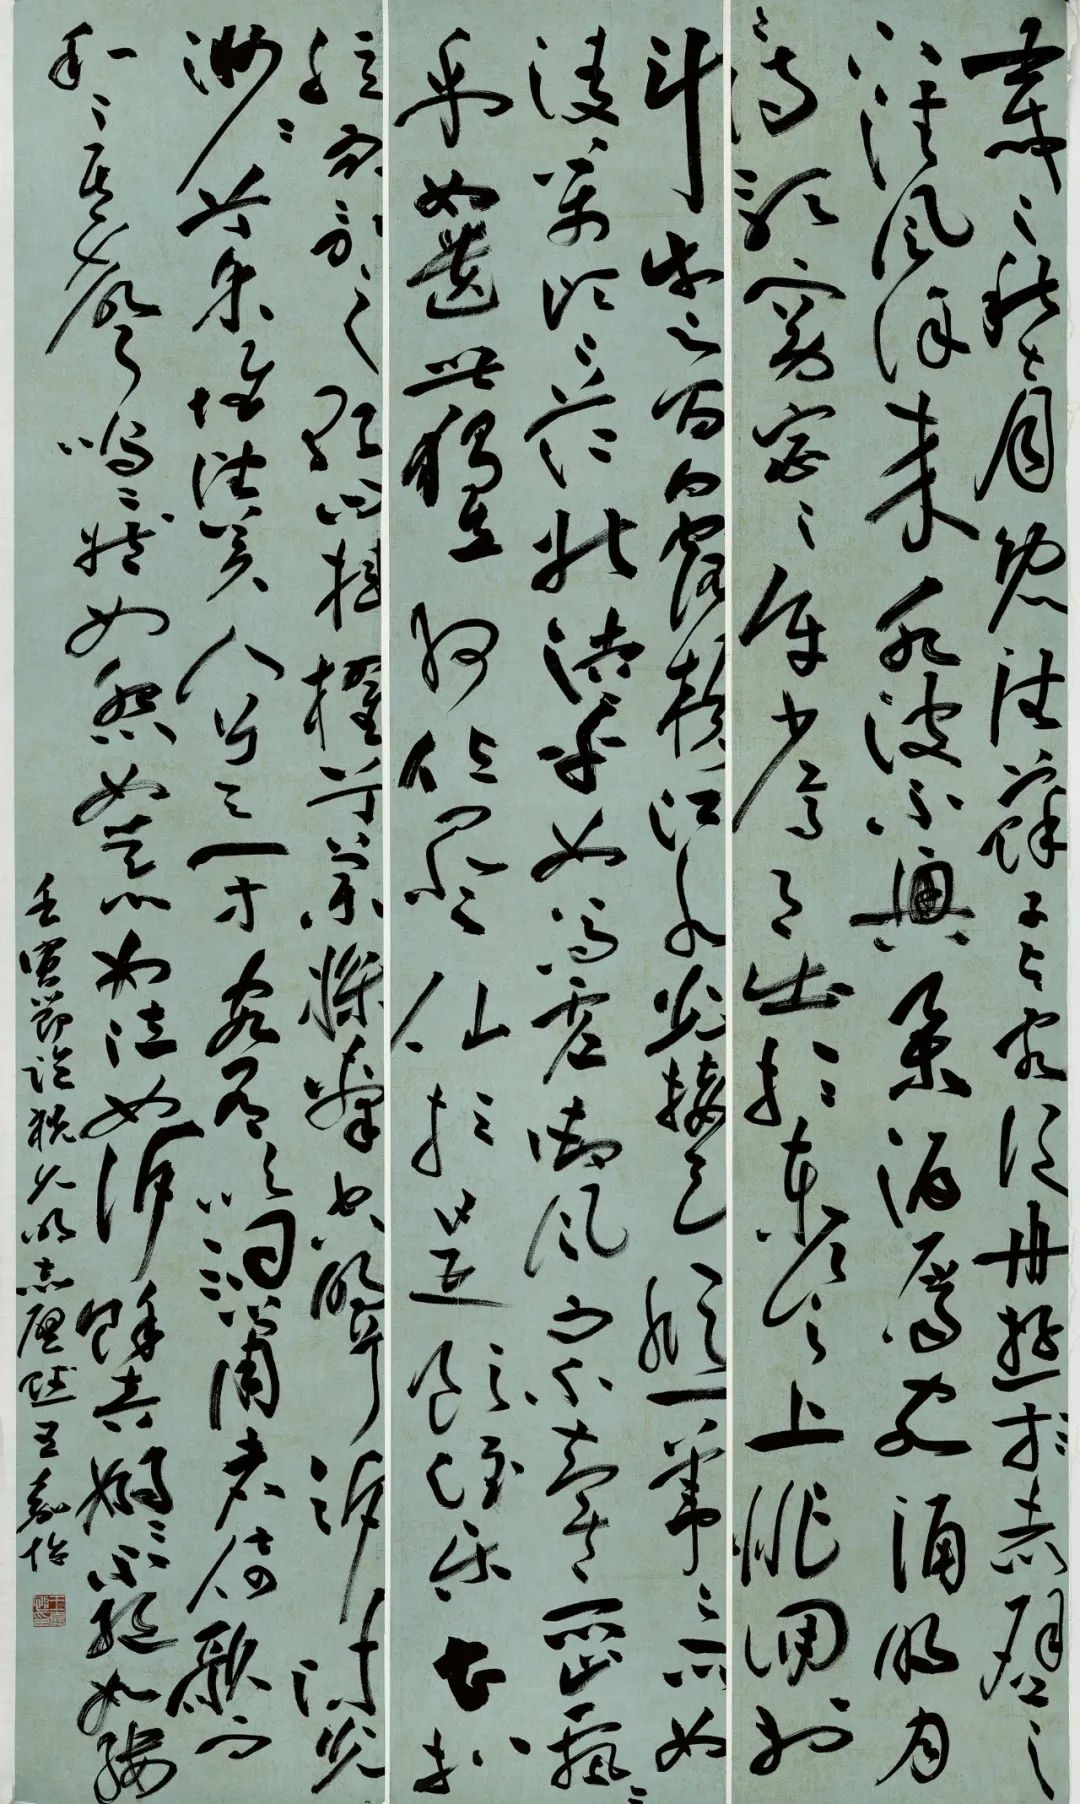 壬戌之秋七月既望蘇子與客泛舟遊於赤壁之
下清風徐來水波不興舉酒屬客誦明月
之詩歌窈窕之章少焉月出於東山之上徘徊於
斗牛之間白露橫江水光接天縱一葦之所如
凌萬頃之茫然浩乎如馮虛御風而不知其所止飄飄
乎如遺世獨立羽化登仙於是飲酒樂甚扣
舷而歌之歌曰桂櫂兮蘭槳擊空明兮泝流光
渺渺兮余懷望美人兮天一方客有吹洞簫者倚歌而
和之其聲嗚嗚然如怨如慕如泣如訴餘音嫋嫋不絕如縷
壬寅節臨祝允明赤壁賦王嘉怡